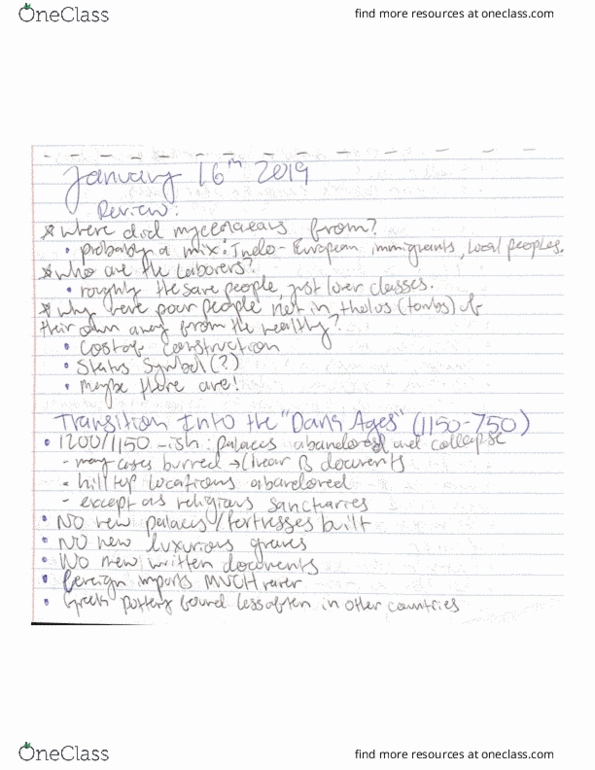 OneClass
find more resources at oneclass.com
January 16th 2019
Review:
* where did mycenaeans from?
• probably a mix: Indo-European immigrants, local peoples.
* who are the laborers?
• roughly the same people, just lower classes.
* why were poor people not in tholus (tombs) of
their own away from the wealthy?
• Cost of construction
• Status Symbol (?)
• Maybe there are!
Transition Into the "Dark Ages" (1150-750)
• 1200/1150-ish: palaces abandoned and collapse
- many cases burned → linear B documents
- hilltop locations abandoned
- except as religious sanctuaries
• NO new palaces/fortresses built
• NO new luxurious graves
• NO new written documents
• foreign imports MUCH rarer
• Greek pottery found less often in other countries
OneClass
find more resources at oneclass.com